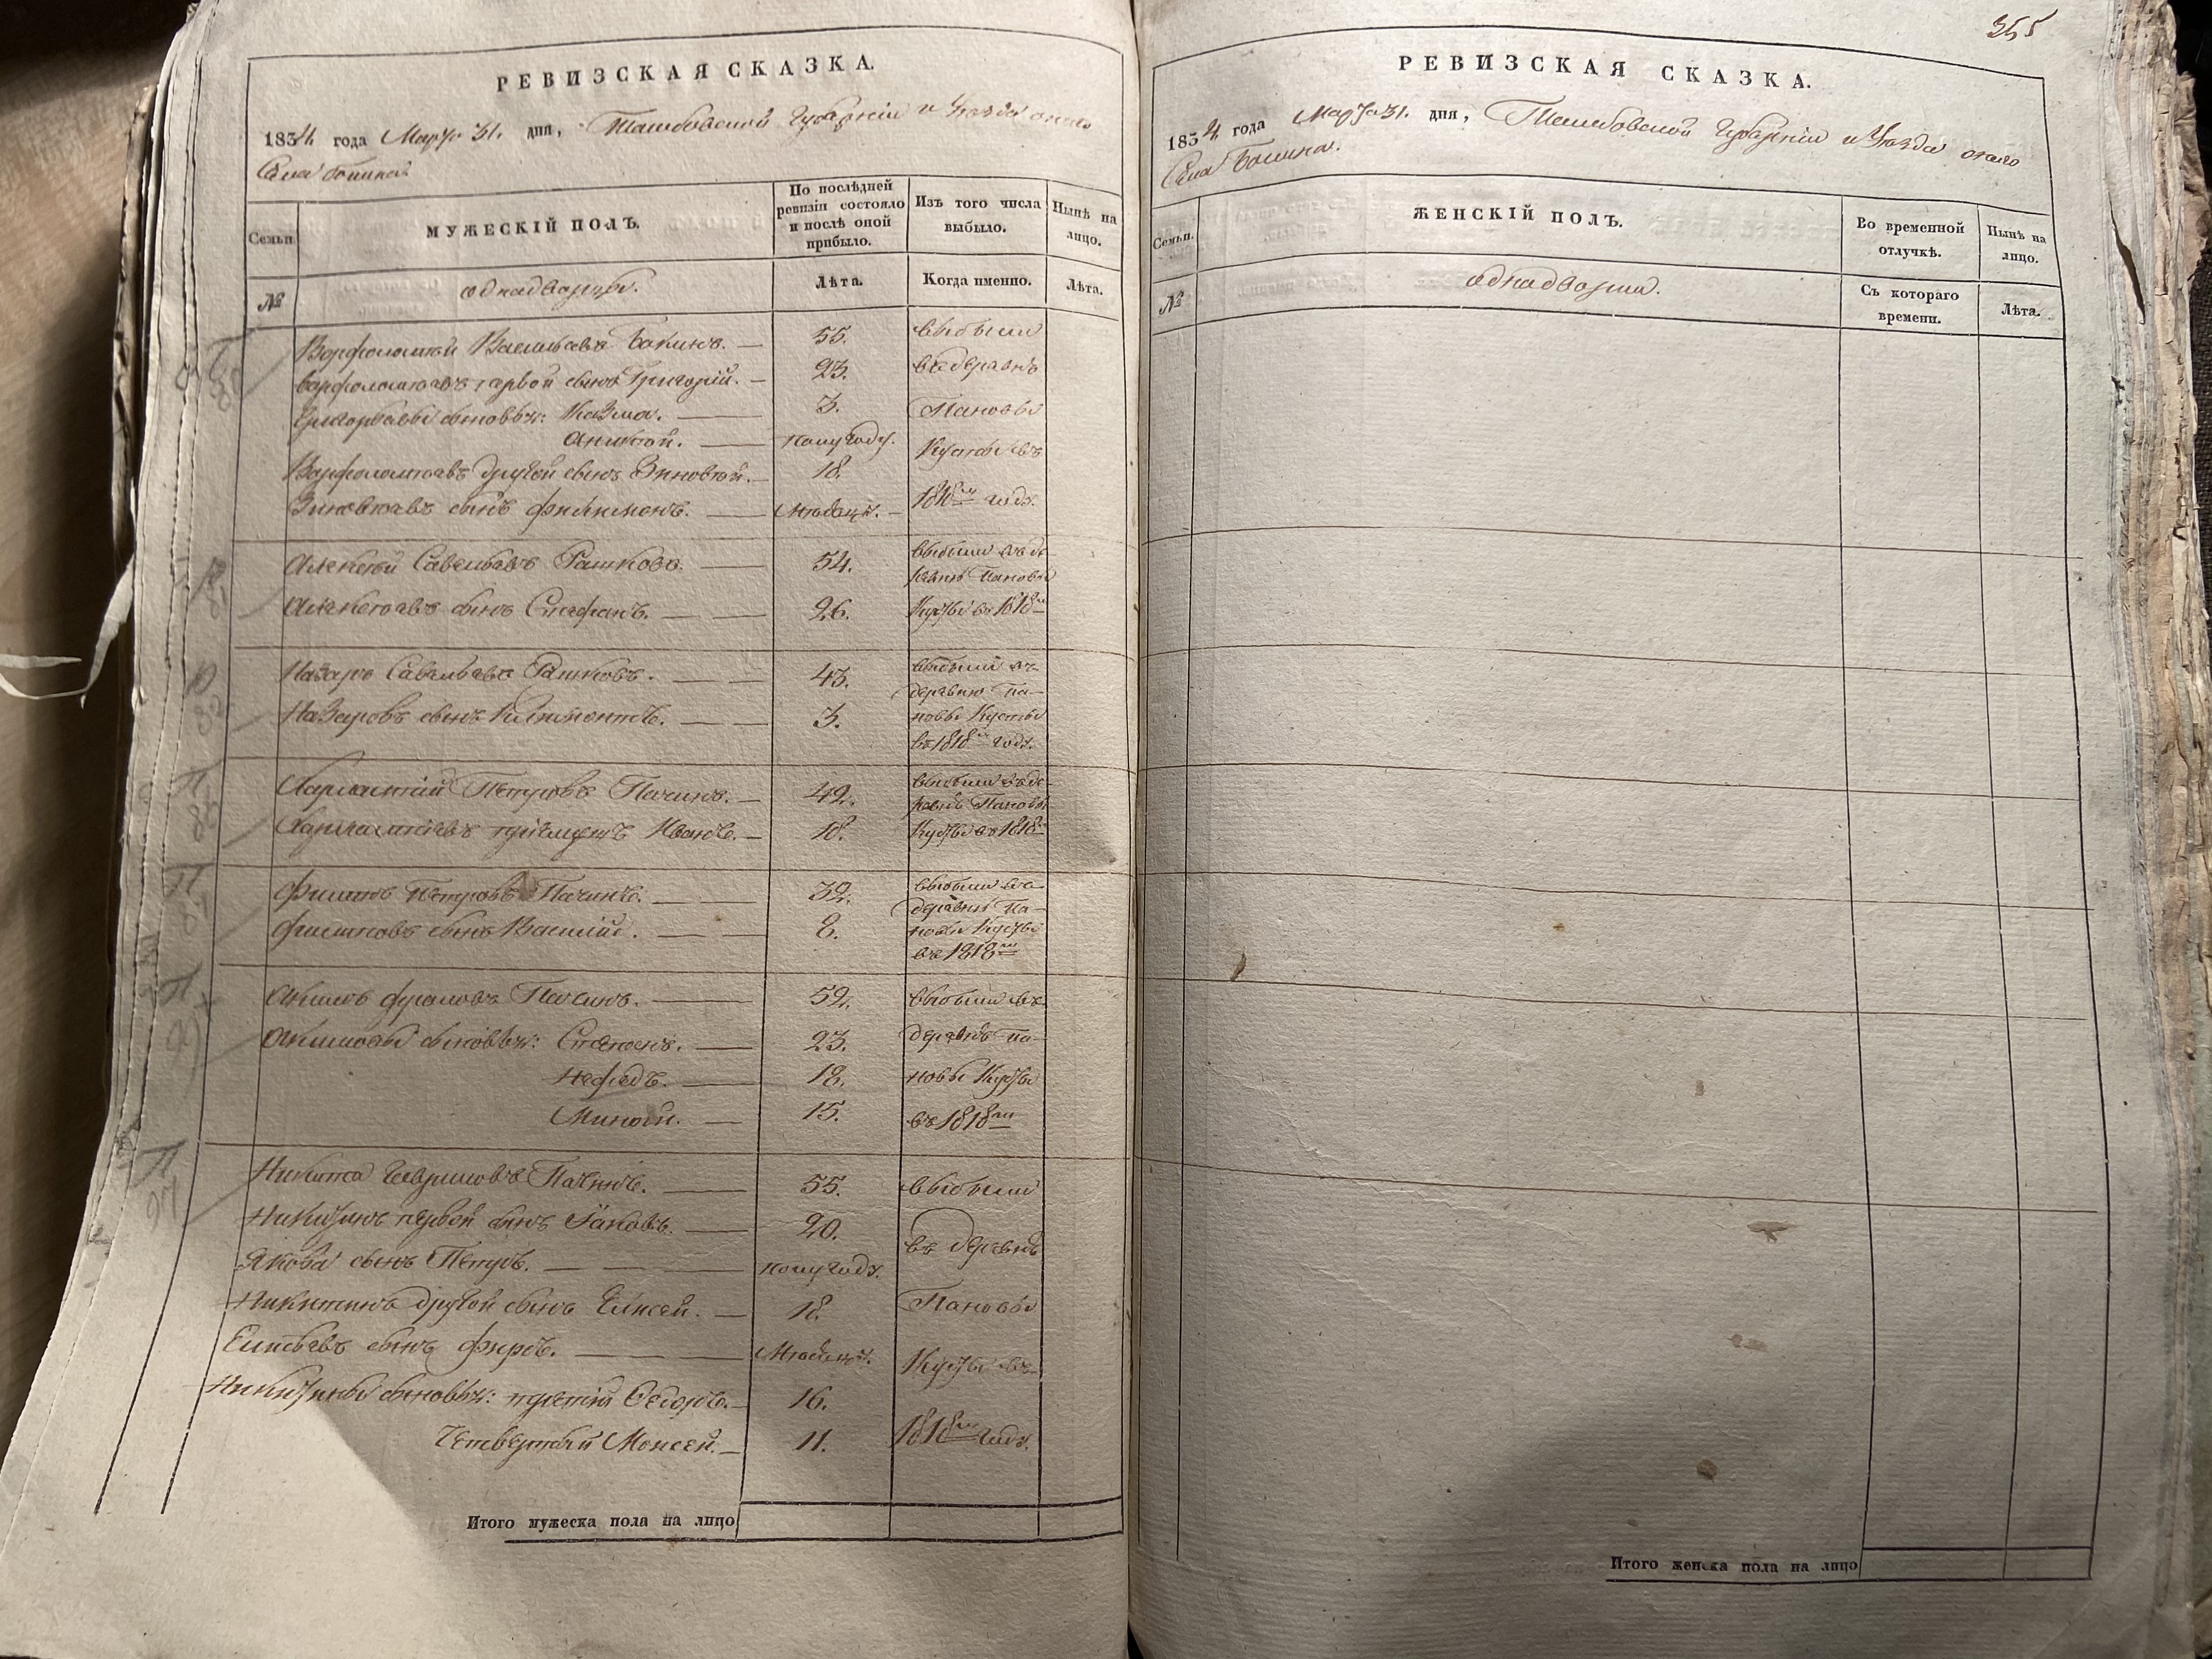 РЕВИЗСКАЯ СКАЗКА.
1834 года Марта 31. дня, Тамбовской Губернии и Уезда онаго
Села Бокина
Семьи. МУЖЕСКІЙ ПОЛЪ. По послѣдней ревизіи состояло и послѣ оной прибыло. Изъ того числа выбыло. Нынѣ на лицо.
№ однадворцы. Лѣта. Когда именно. Лѣта.
Варфоломей Васильевъ Бакинъ. — 55. выбыли
варфоломеевъ первой сынъ Григорій. — 23. въ деревню
Григорьевы сыновья: Казма. — 3. Пановы
Аникей. — полугоду.
Кусты въ
Варфоломеевъ другой сынъ Зиновей. — 18.
Зиновеевъ сынъ Филимонъ. — Младенцъ. — 1818м году.
Алексей Савельевъ Рашковъ. — 54. выбыли въ де-
ревню Пановы
Алексеевъ сынъ Стефанъ. — 26. Кусты въ 1818м
Назаръ Савельевъ Рашковъ. — 43. выбыли въ
деревню Па-
Назаровъ сынъ Климонтъ. — 3. новы Кусты
въ 1818м году.
Харлампій Петровъ Пачинъ. — 42. выбыли въ де-
ревню Пановы
Харлампіевъ пріемышъ Иванъ. — 18. Кусты въ 1818м
П
Филипъ Петровъ Пачинъ. — 32. выбыли въ
деревню Па-
Филиповъ сынъ Василій. — 8. новы Кусты
въ 1818м
П
Акимъ Фроловъ Пачинъ. — 52. выбыли въ
Акимовы сыновья: Степанъ. — 23. деревню Па-
Нефедъ. — 18. новы Кусты
Миной. — 15. въ 1818м
П
97
Никита Гавриловъ Пачинъ. — 55. выбыли
Никитинъ первой сынъ Яковъ. — 20. въ деревню
Якова сынъ Петръ. — полугоду.
Никитинъ другой сынъ Елисей. — 18. Пановы
Елисеевъ сынъ Фирсъ. — Младенцъ. Кусты въ
Никитины сыновья: третій Федоръ. — 16.
Четвертый Моисей. — 11. 1818м году.
Итого мужеска пола на лицо
355
РЕВИЗСКАЯ СКАЗКА.
1834 года Марта 31. дня, Тамбовской Губерніи и Уезда онаго
Села Бокина.
Семьи. ЖЕНСКІЙ ПОЛЪ. Во временной отлучкѣ. Нынѣ на лицо.
№ однадворки. Съ котораго времени. Лѣта.
Итого женска пола на лицо